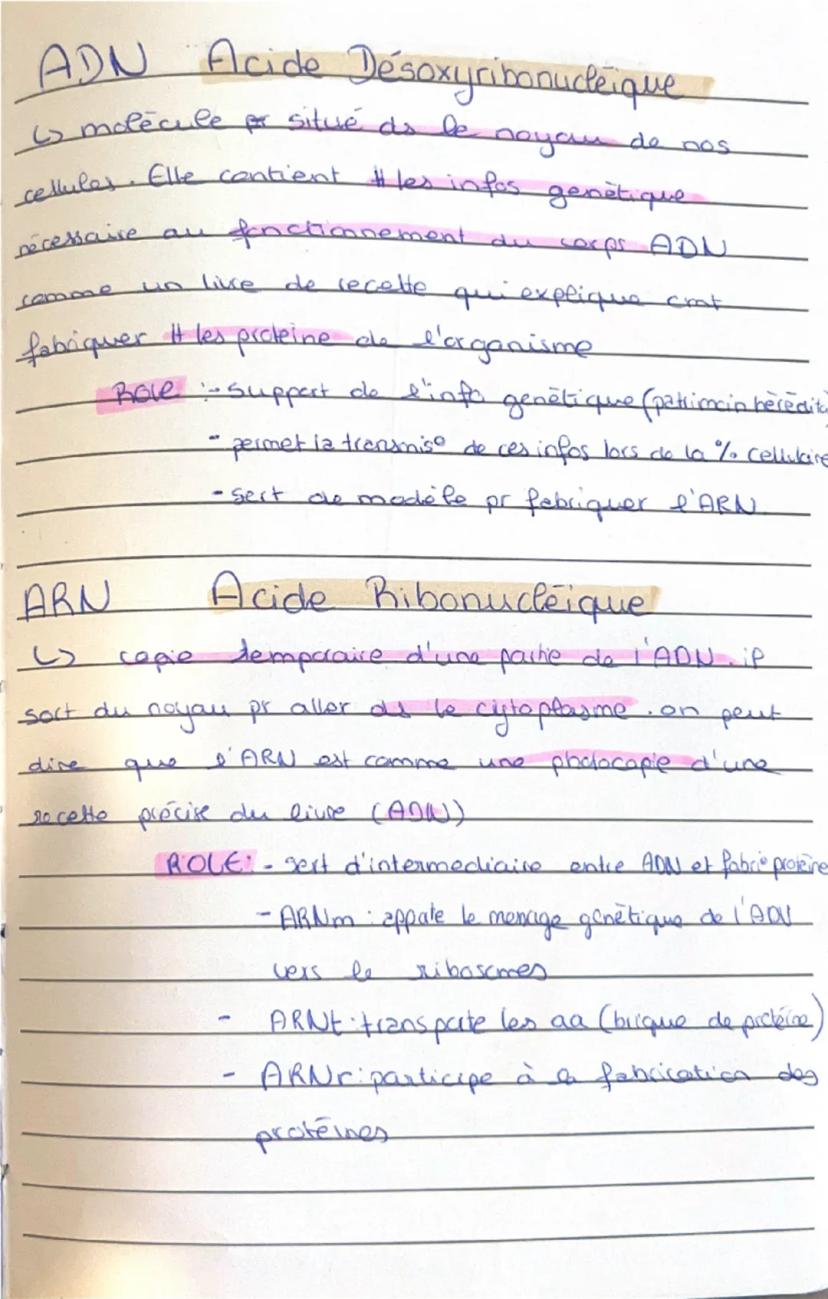 ADN Acide Désoxyribonucléique
↳ molécule situé ds le noyau de nos
cellules. Elle contient # les infos genètique
nécessaire au fonctionnement du corps ADN
comme un livre de recette qui explique cmt
fabriquer # les proteine de l'organisme
Role :- support de l'info genètique (patrimoin hérédita
- permet la transmis° de ces infos lors de la % cellulaire
- sert de modèle pr fabriquer l'ARN
ARN Acide Ribonucléique
↳ copie temporaire d'une partie de l'ADN. il
sort du noyau pr aller ds le cytoplasme. on peut
dire que l'ARN est comme une photocopie d'une
recette précise du livre (ADN))
ROLE: - sert d'intermediaire entre ADN et fabric° protéine
- ARNm : appate le message génètique de l'ADN
vers le ribosomes
- ARNt : transporte les aa (brique de protéine)
- ARNr : participe à la fabrication des
protéines